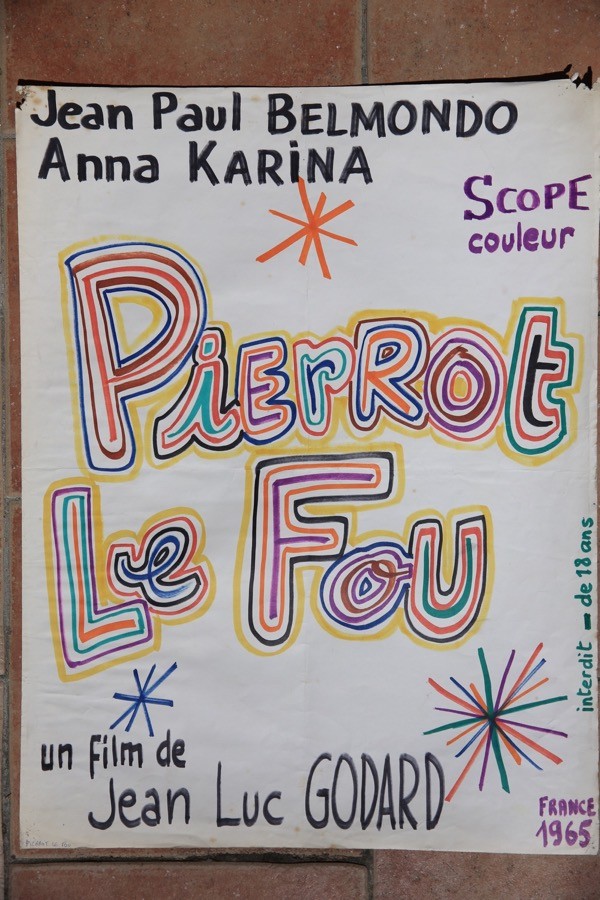 Jean Paul BELMONDO
Anna KARiNA
SCOPE
couleur
PiERROt
Le FOU
interdit - de 18 ans
un film de
Jean Luc GODARD
FRANCE
1965